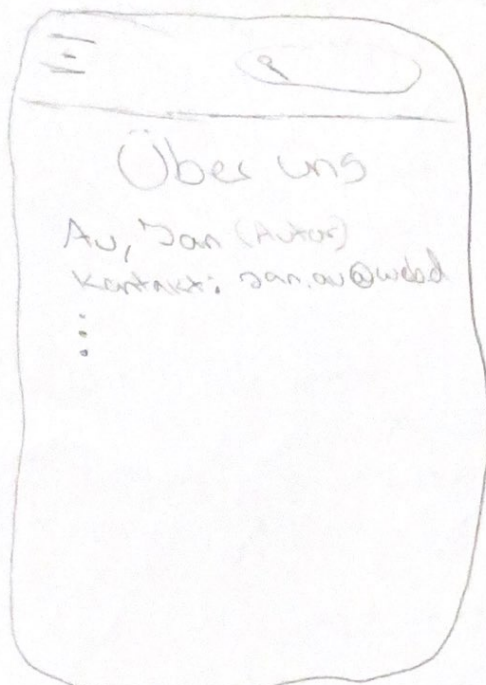 Über uns
Au, Jan (Autor)
Kontakt: Jan.au@web.d